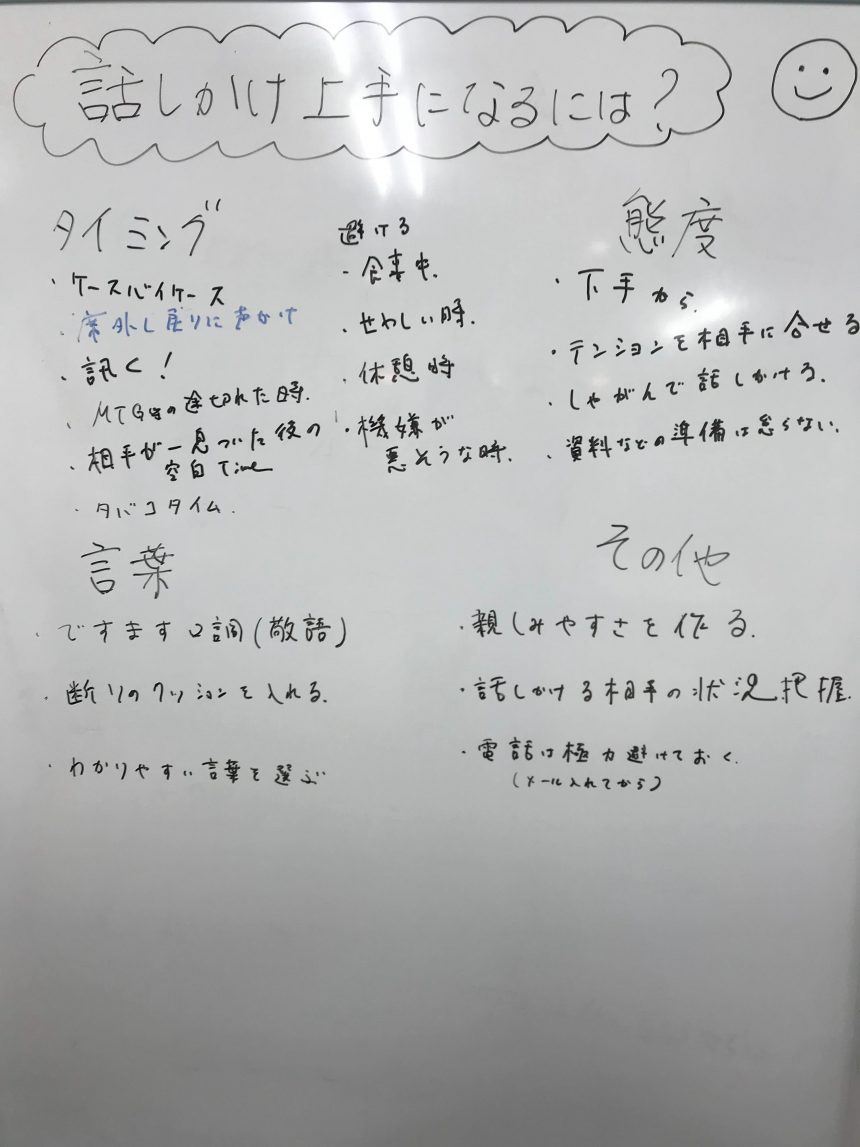 話しかけ上手になるには?
タイミング
・ケースバイケース
・席外し戻りに声かけ
・訊く!
・MTG等の途切れた時.
・相手が一息ついた後の
空白Time
・タバコタイム.
避ける
・食事中.
・せわしい時.
・休憩時
・機嫌が
悪そうな時.
態度
・下手から.
・テンションを相手に合せる
・しゃがんで話しかける.
・資料などの準備は怠らない.
言葉
・ですます口調(敬語)
・断りのクッションを入れる.
・わかりやすい言葉を選ぶ
その他
・親しみやすさを作る.
・話しかける相手の状況把握.
・電話は極力避けておく.
(メール入れてから)